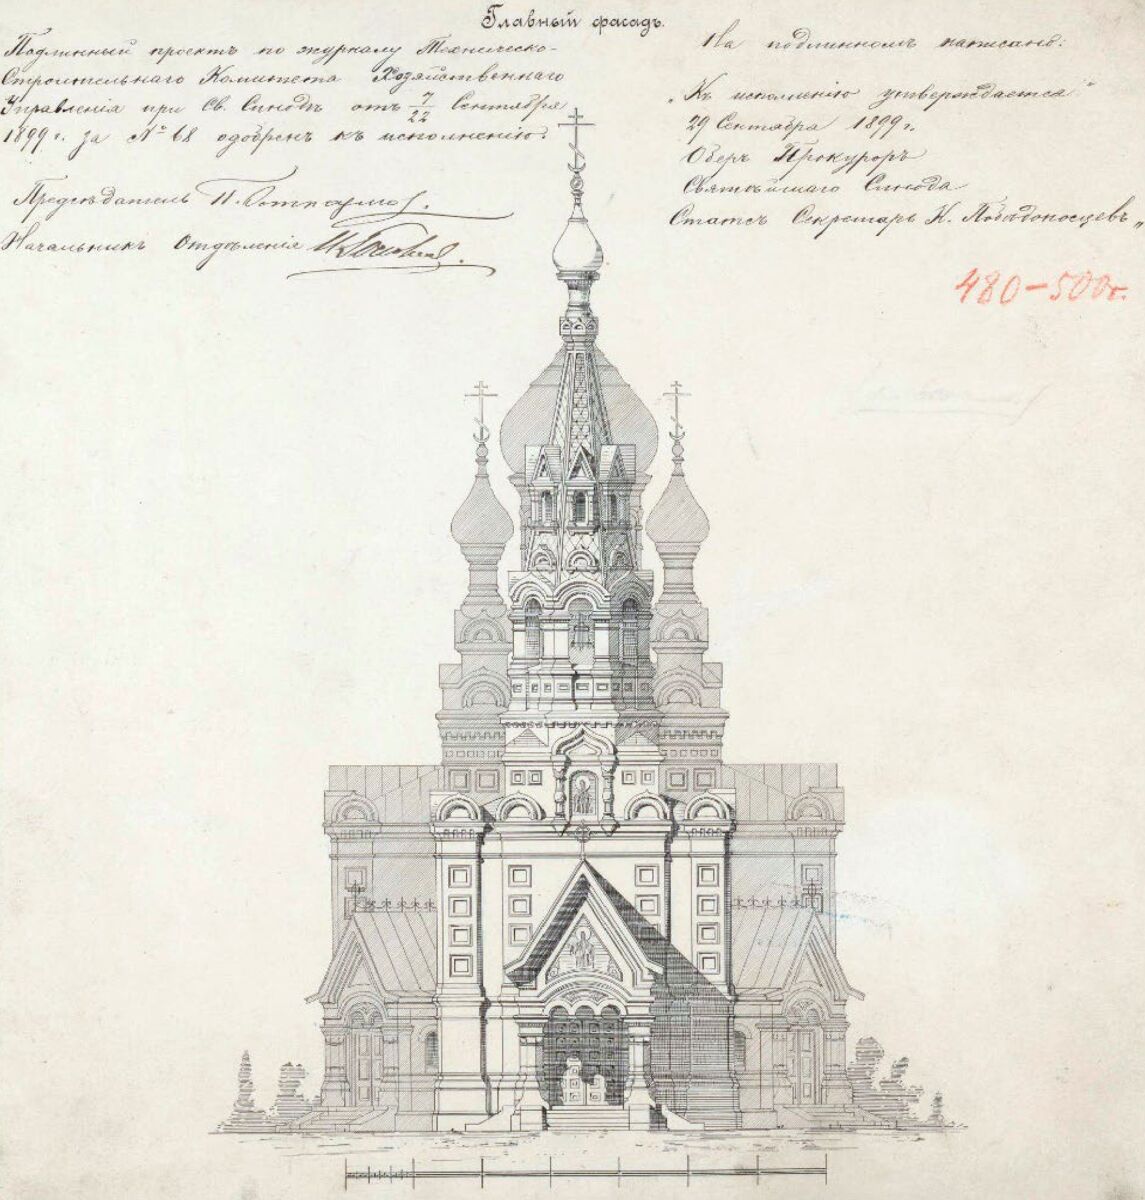 Главный фасадъ.
Подлинный проектъ по журналу Техническо-
Строительнаго Комитета Хозяйственнаго
Управленія при Св. Синодѣ отъ 7/22 Сентября
1899 г. за № 68 одобренъ къ исполненію.
Предсѣдатель
Начальникъ Отдѣленія
На подлинномъ написано:
„Къ исполненію утверждается"
29 Сентября 1899 г.
Оберъ Прокуроръ
Святѣйшаго Синода
Статсъ Секретарь К. Побѣдоносцевъ„
480-500г.